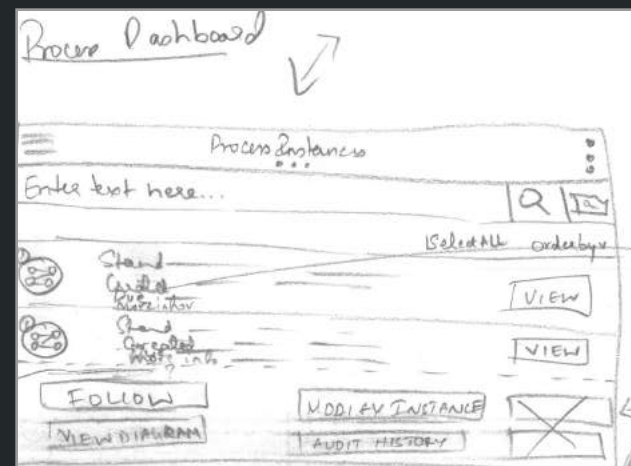 Process Dashboard
Process Instances
Enter text here...
Select All orderby
Created
Due
More info
VIEW
Created
More info
VIEW
FOLLOW
MODIFY INSTANCE
VIEW DIAGRAM
AUDIT HISTORY